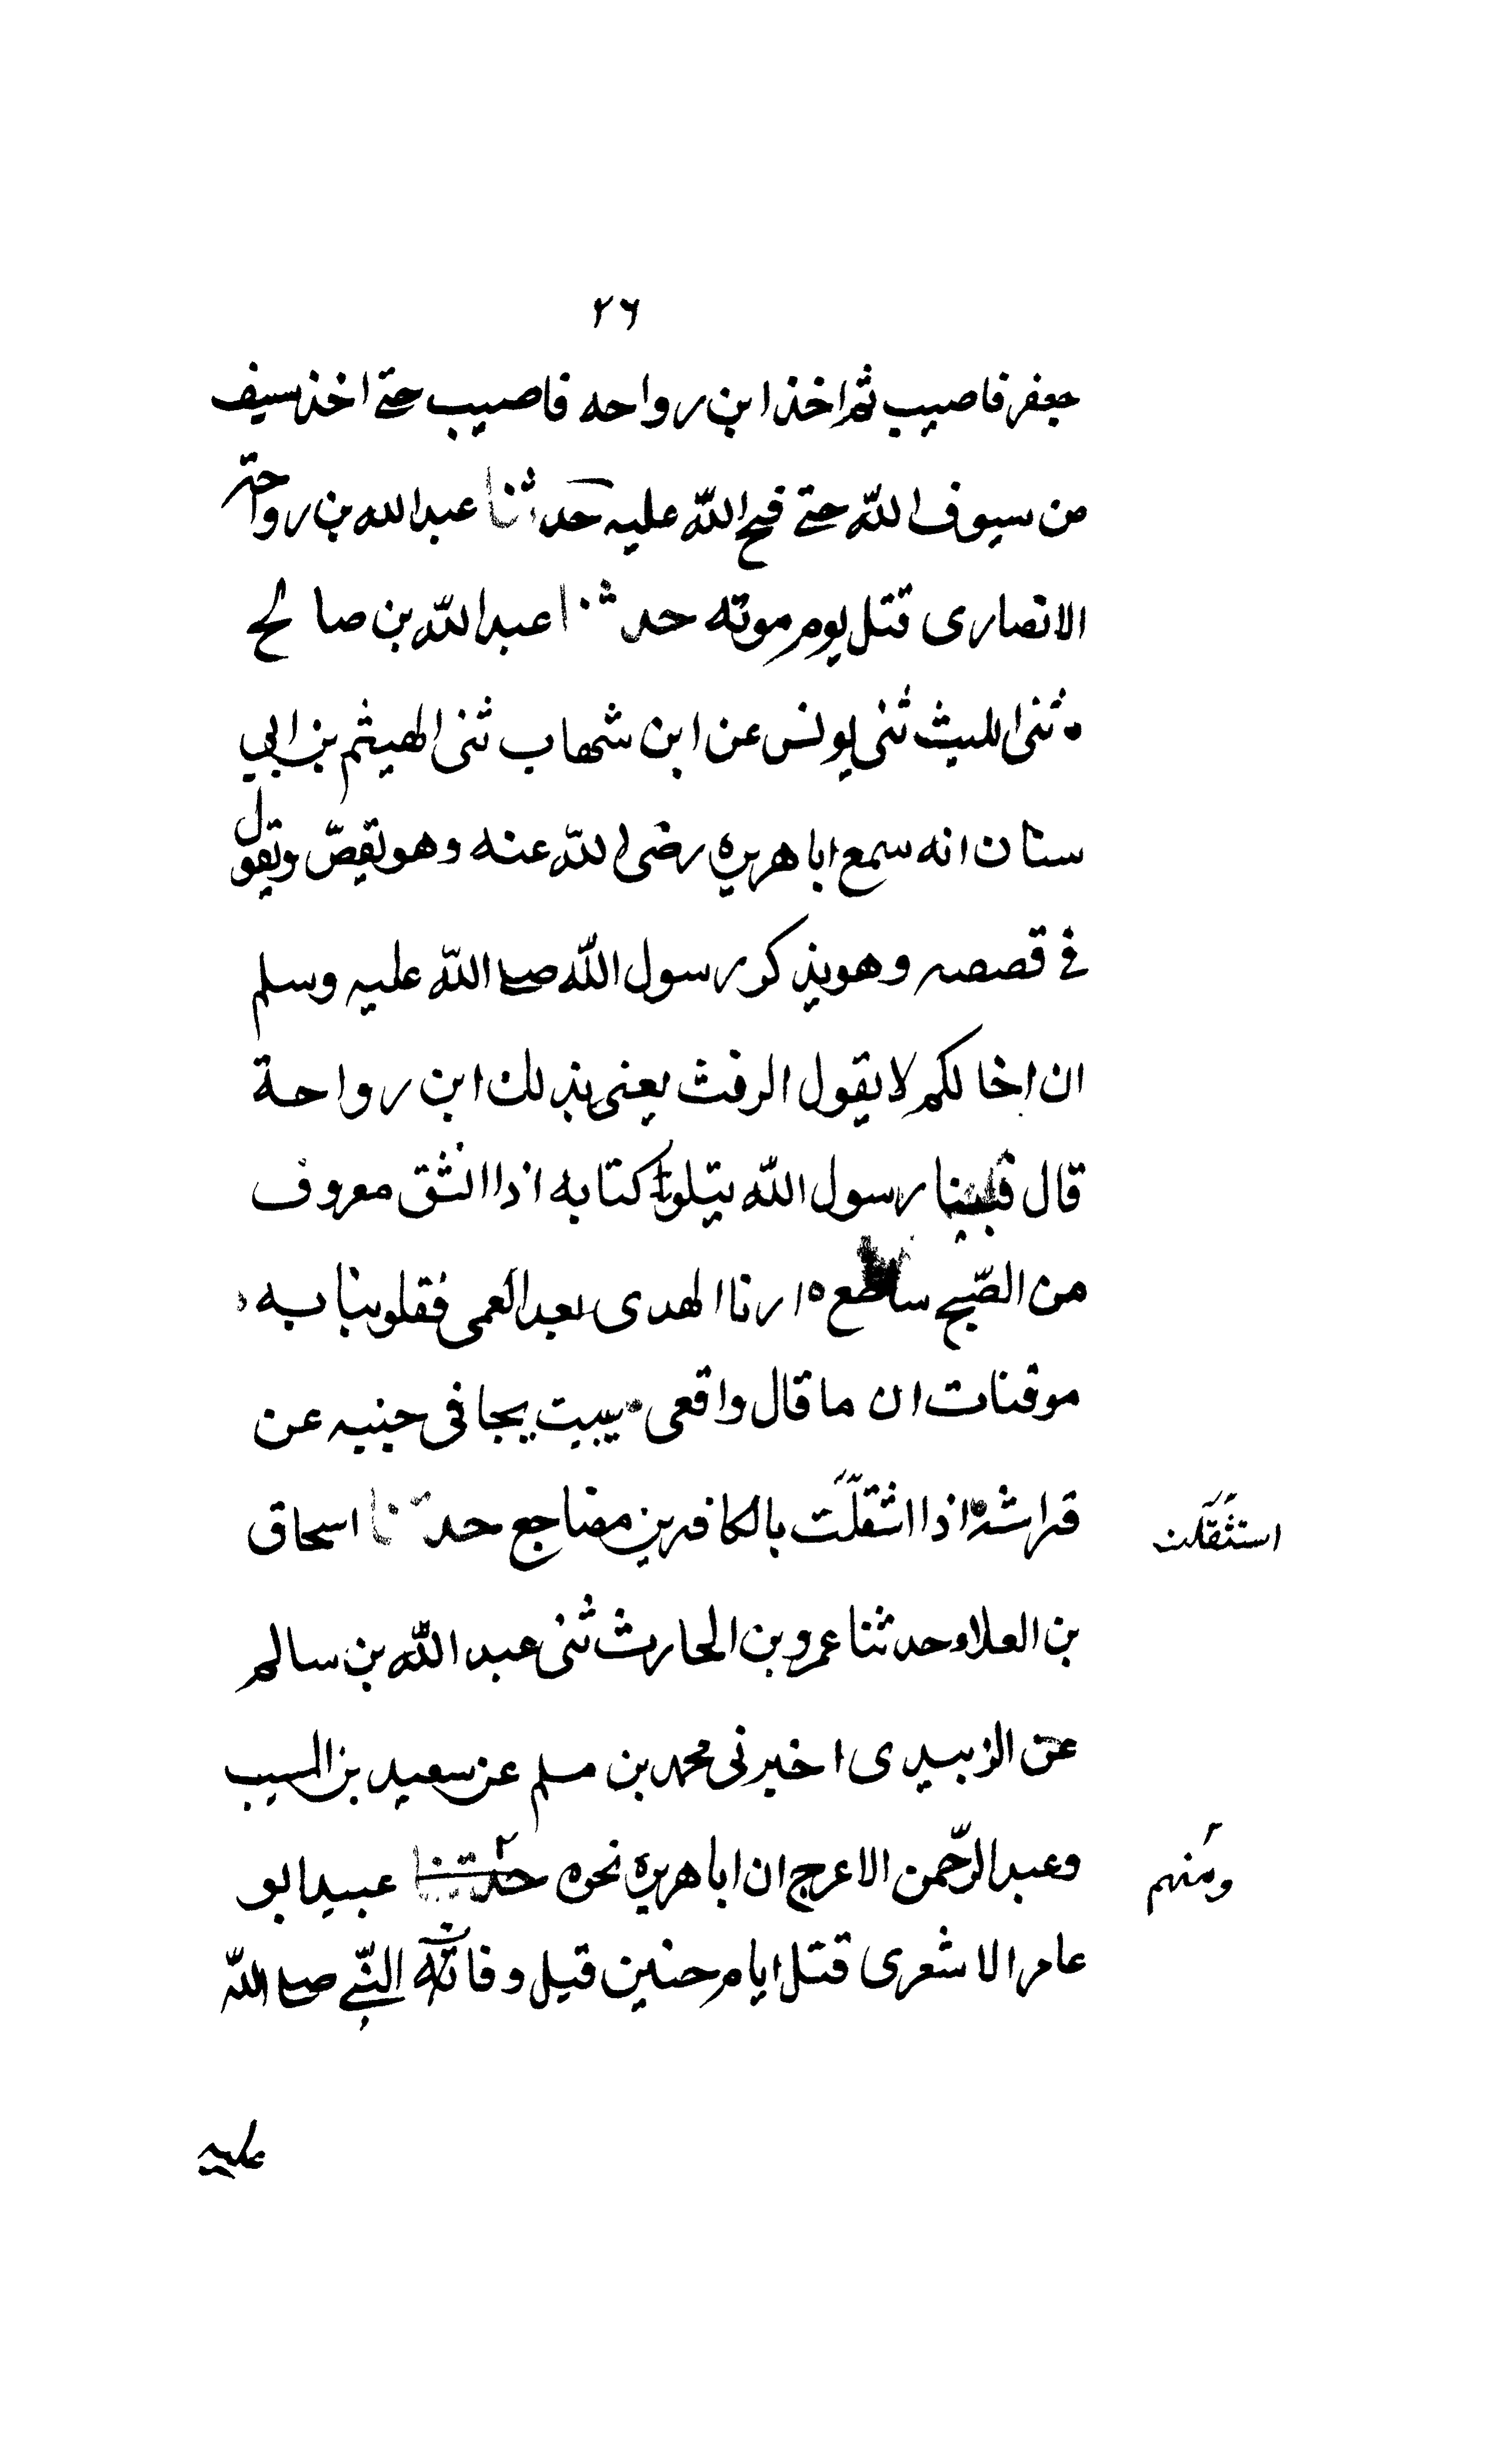 ٢٦
جعفر فاصيب ثم اخذ ابن رواحه فاصيب حتى اخذ سيف
من سيوف الله حتى فتح الله عليه حدثنا عبد الله بن رواحة
الانصارى قتل يوم موته حدثنا عبد الله بن صالح
ثنى الليث ثنى يونس عن ابن شهاب ثنى الهيثم بن ابي
سنان انه سمع ابا هريره رضى الله عنه وهو يقصّ ويقول
فى قصصه وهو يذكر رسول الله صلى الله عليه وسلم
ان اخا لكم لا يقول الرفث يعنى بذلك ابن رواحة
قال فبينا رسول الله يتلو كتابه اذا انشق معروف
من الصّبح ساطع ه ارنا الهدى بعد العمى فقلوبنا به
موقنات ان ما قال واقعى يبيت يجافى جنبيه عن
فراشه اذا اثقلّت بالكافرين مضاجع حدثنا اسحاق
استثقلت
بن العلاء حدثنا عمرو بن الحارث ثنى عبد الله بن سالم
عن الزبيدى اخبرنى محمد بن مسلم عن سعيد بن المسيب
وعبد الرّحمن الاعرج ان ابا هريره نحوه حدثنا عبيد ابو
ومنهم
عامر الاشعرى قتل ايام حنين قبل وفاته النّبى صلى الله
عليه